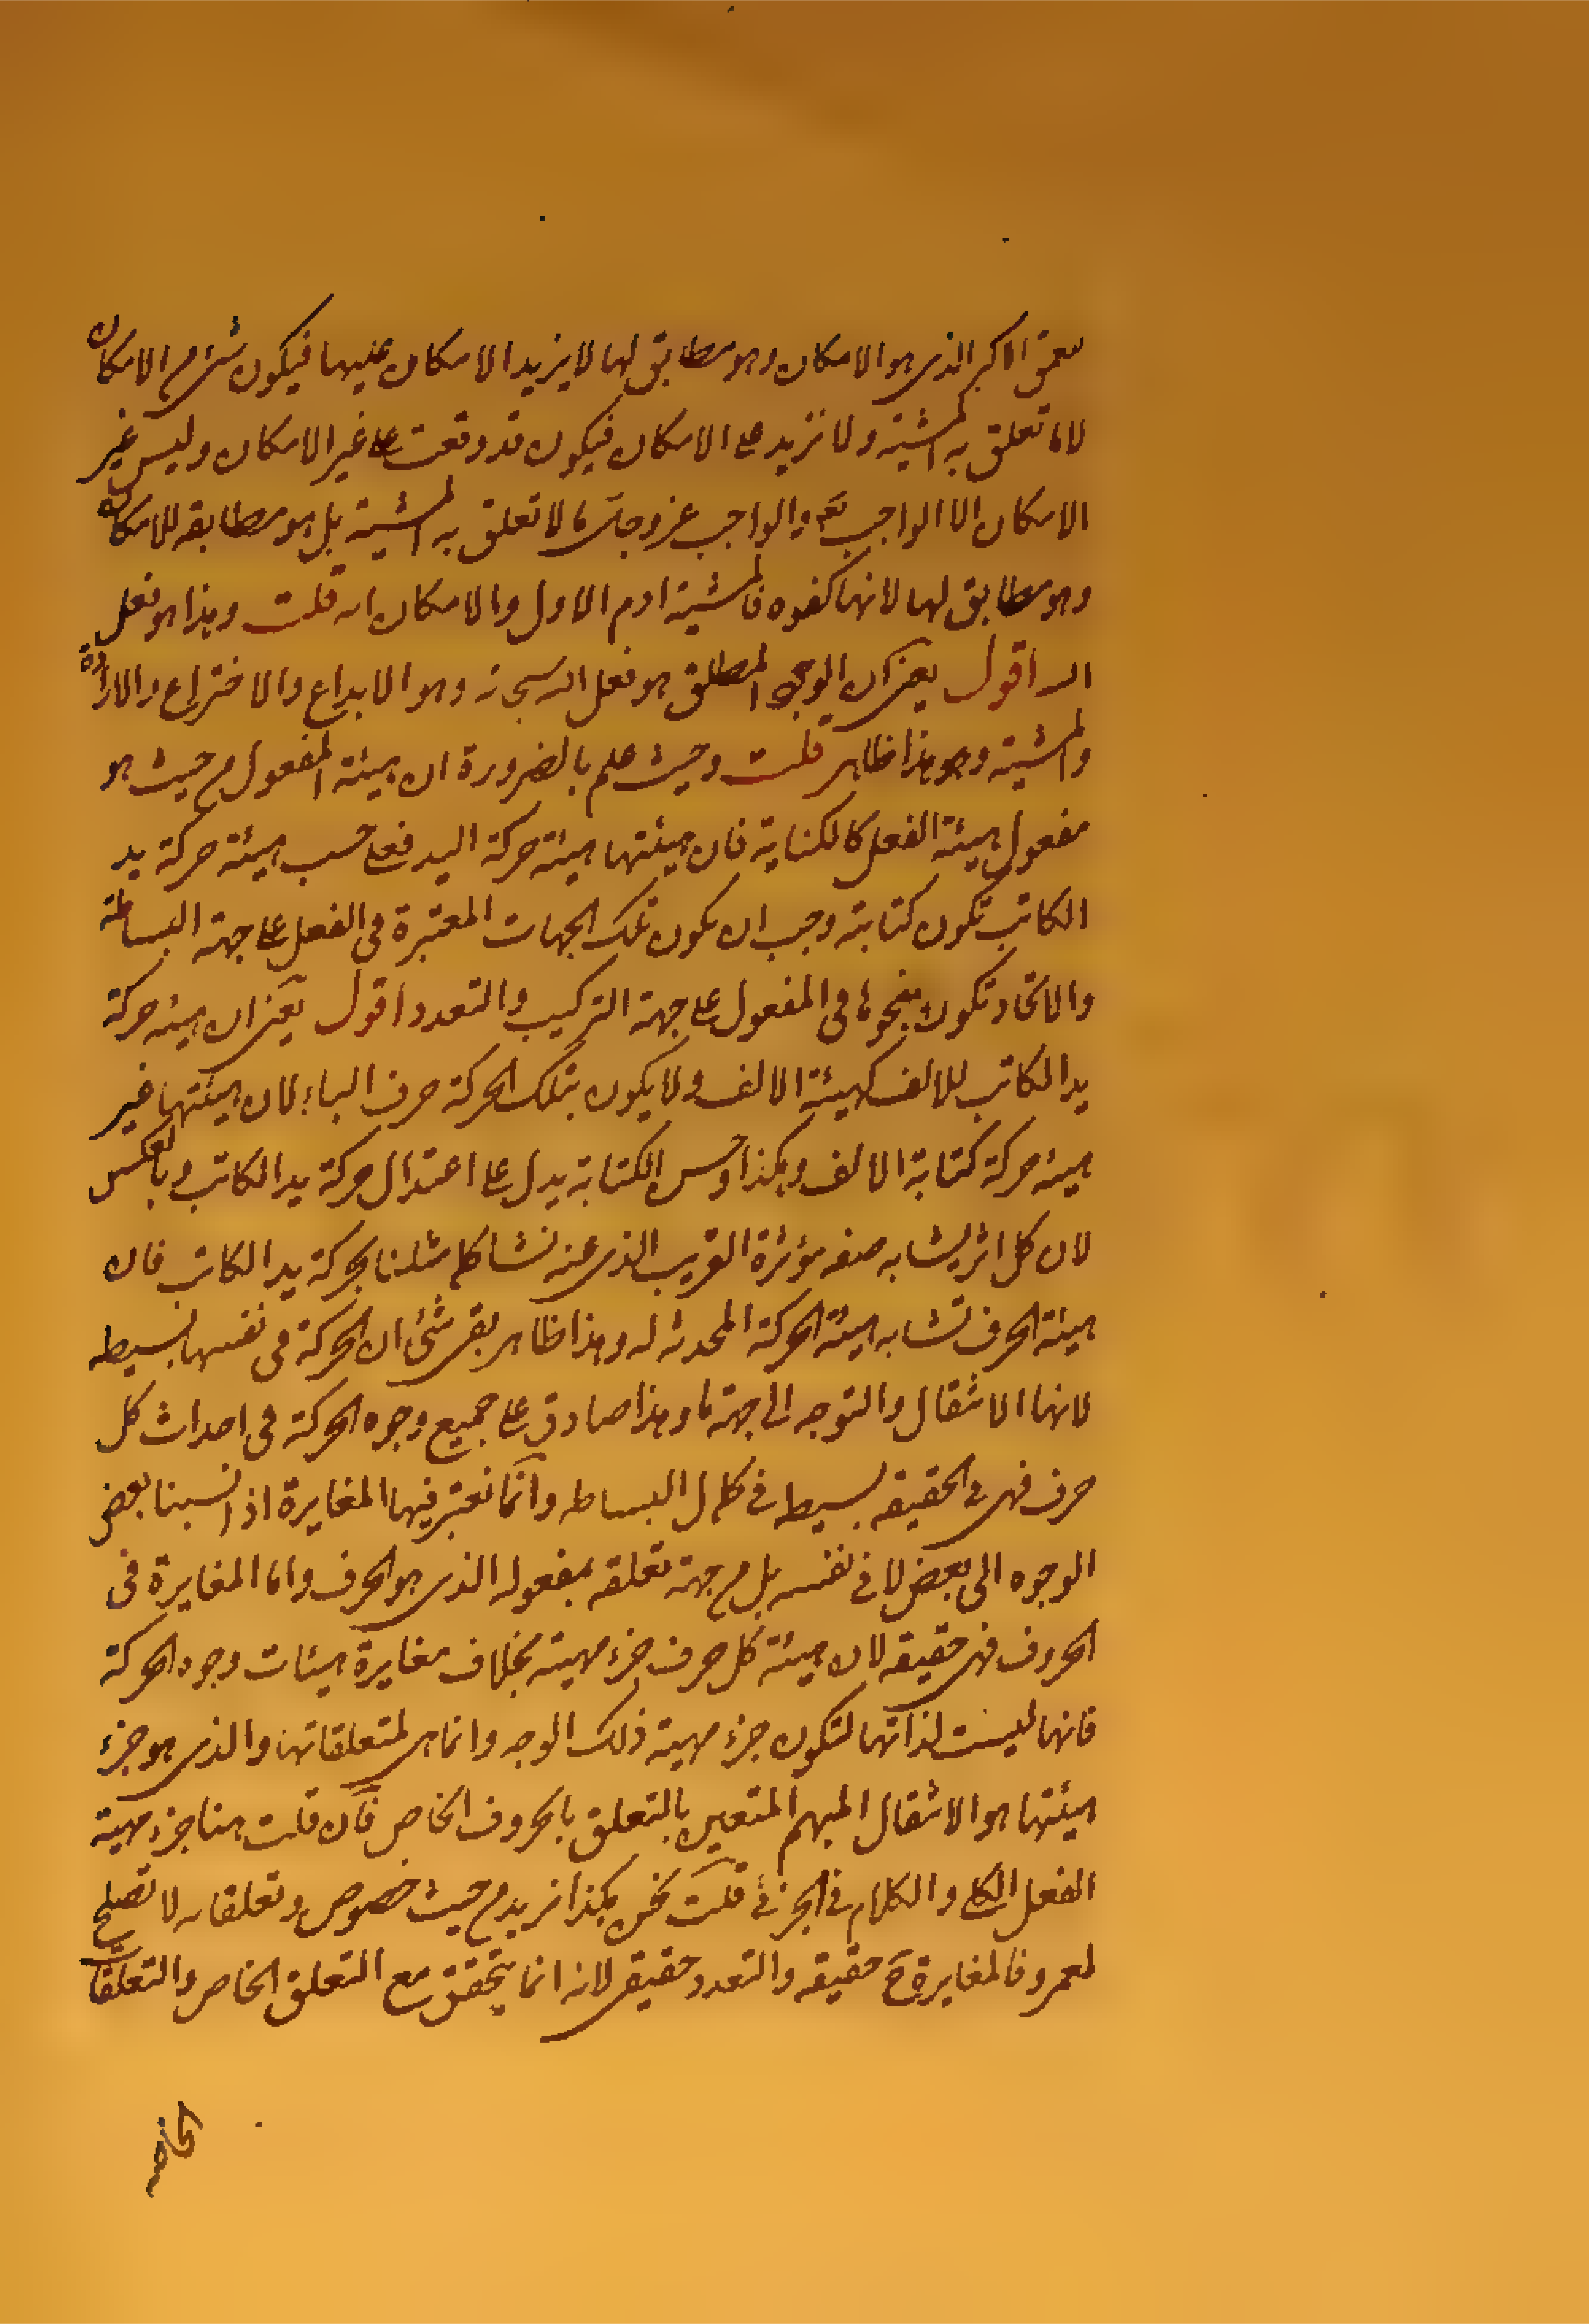 لعمق الاكبر الذى هو الامكان وهو مطابق لها لا يزيد الامكان عليها فيكون شئ من الامكان
لا ما تعلق به المشية ولا تزيد على الامكان فيكون قد وقعت على غير الامكان وليس غير
الامكان الا الواجب تع والواجب عز وجل لا تعلق به المشية بل هو مطابقه للامكان
وهو مطابق لها لانها كفوه فالمشية ادم الاول والامكان اه قلت وهذا هو فعل
الله اقول يعنى ان الوجود المطلق هو فعل الله سبحانه وهو الابداع والاختراع والارادة
والمشية وهو هذا ظاهر قلت وحيث علم بالضرورة ان هيئة المفعول من حيث هو
مفعول هيئة الفعل كالكتابة فان هيئتها هيئة حركة اليد فعلى حسب هيئة حركة يد
الكاتب تكون كتابته وجب ان يكون تلك الجهات المعتبرة فى الفعل على جهة البساطة
والاتحاد تكون بنحوها فى المفعول على جهة التركيب والتعدد اقول يعنى ان هيئه حركة
يد الكاتب للالف كهيئة الالف ولا يكون بتلك الحركة حرف الباء لان هيئتها غير
هيئه حركة كتابة الالف وهكذا وحسن الكتابة يدل على اعتدال حركة يد الكاتب وبالعكس
لان كل اثر يشابه صفه مؤثرة القريب الذى عنه نشا كما مثلنا بحركة يد الكاتب فان
هيئة الحرف تشابه هيئة الحركة المحدثه له وهذا ظاهر بقى شئ ان الحركة فى نفسها بسيطه
لانها الانتقال والتوجه الى جهة ما وهذا صادق على جميع وجوه الحركة فى احداث كل
حرف فهى فى الحقيقه بسيط فى كمال البساطه وانما نعتبر فيها المغايرة اذا نسبنا بعض
الوجوه الى بعض لا فى نفسه بل من جهة تعلقه بمفعوله الذى هو الحرف واما المغايرة فى
الحروف فهى حقيقه لان هيئة كل حرف جزء مهيته بخلاف مغايرة هيئات وجوه الحركة
فانها ليست لذاتها لتكون جزء مهية ذلك الوجه وانما هى لمتعلقاتها والذى هو جزء
هيئتها هو الانتقال المبهم المتعين بالتعلق بالحروف الخاص فان قلت هنا جزء مهية
الفعل الكلى والكلام فى الجزئى قلت نحن هكذا نريد من حيث خصوص وتعلقاته لا تصلح
لعمرو فالمغايرة ح حقيقه والتعدد حقيقى لانه انما يتحقق مع التعلق الخاص والتعلقات
الخاصه